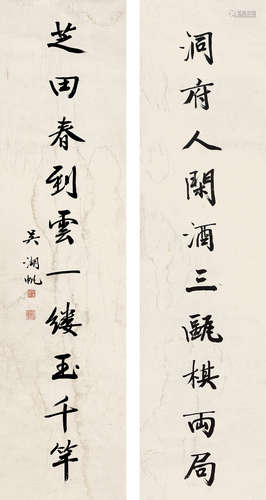 洞府人閑酒三甌棋两局
芝田春到雲一缕玉千竿
吴湖帆